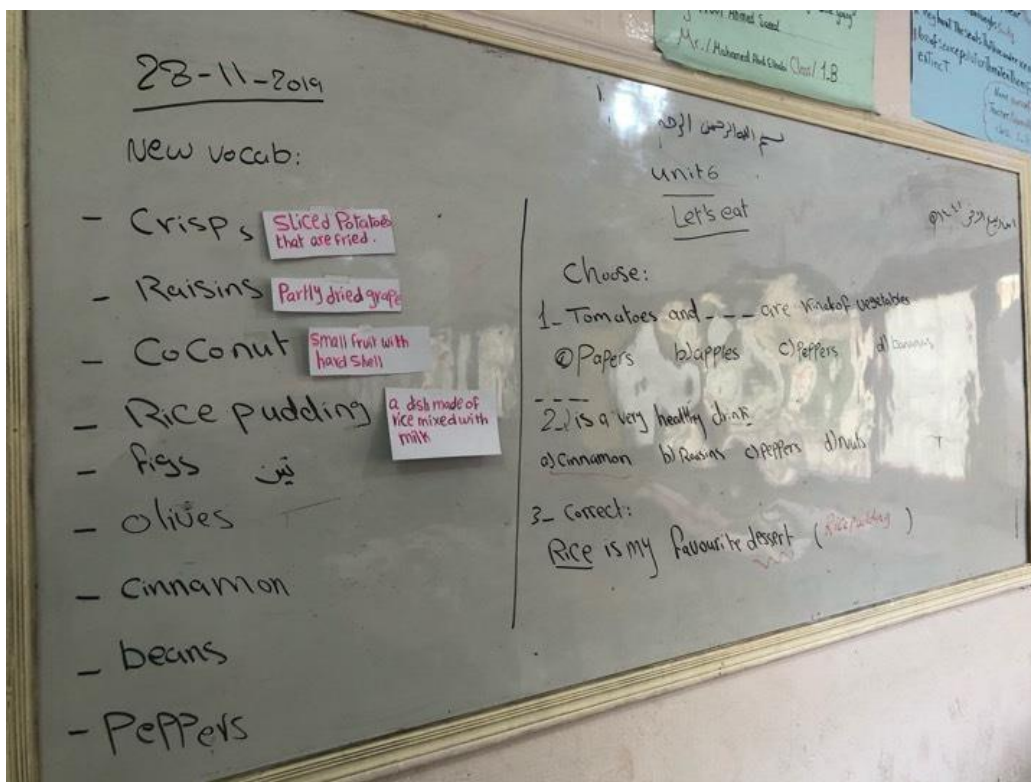 28-11-2019
New vocab:
- Crisps
Sliced Potatoes
that are fried.
- Raisins
Partly dried grape
- Coconut
Small fruit with
hard Shell
- Rice pudding
a dish made of
rice mixed with
milk
- figs تين
- olives
- Cinnamon
- beans
- Peppers
بسم الله الرحمن الرحيم
unit 6
Let's eat
Choose:
1- Tomatoes and ---- are kind of vegetables
a) Papers b) apples c) Peppers d) bananas
----
2- is a very healthy drink
a) Cinnamon b) Raisins c) Peppers d) nuts
3- Correct:
Rice is my favourite dessert (Rice pudding)
Ahmed Saeed
Mr./Mohamed Class/1.B
extinct